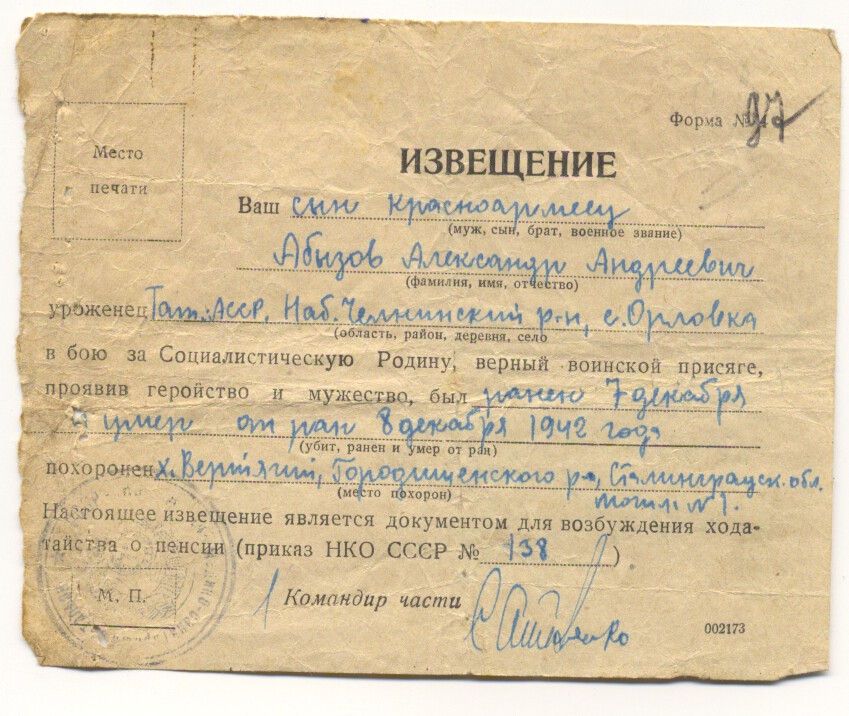 Форма №
97
Место
печати
ИЗВЕЩЕНИЕ
Ваш сын красноармеец
(муж, сын, брат, военное звание)
Абызов Александр Андреевич
(фамилия, имя, отчество)
уроженец Тат. АССР, Наб. Челнинский р-н, с. Орловка
(область, район, деревня, село
в бою за Социалистическую Родину, верный воинской присяге,
проявив геройство и мужество, был ранен 7 декабря
и умер от ран 8 декабря 1942 года
(убит, ранен и умер от ран)
похоронен х. Вертячий, Городищенского р-на, Сталинградск. обл.
(место похорон)
могил. № 1.
Настоящее извещение является документом для возбуждения хода-
тайства о пенсии (приказ НКО СССР № 138)
М. П.
Командир части
002173